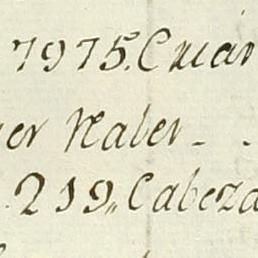 7975. Criar
er Haber - .
219,, Cabeza